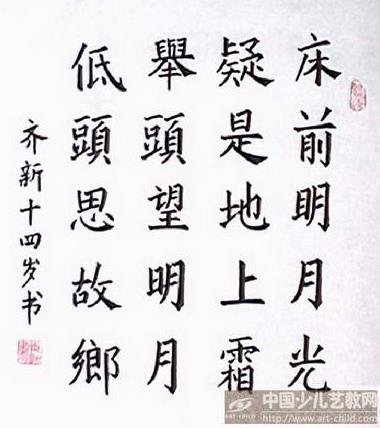 床前明月光
疑是地上霜
舉頭望明月
低頭思故鄉
齐新十四岁书
中国少儿艺教网
www.art-child.com
ART-CHILD